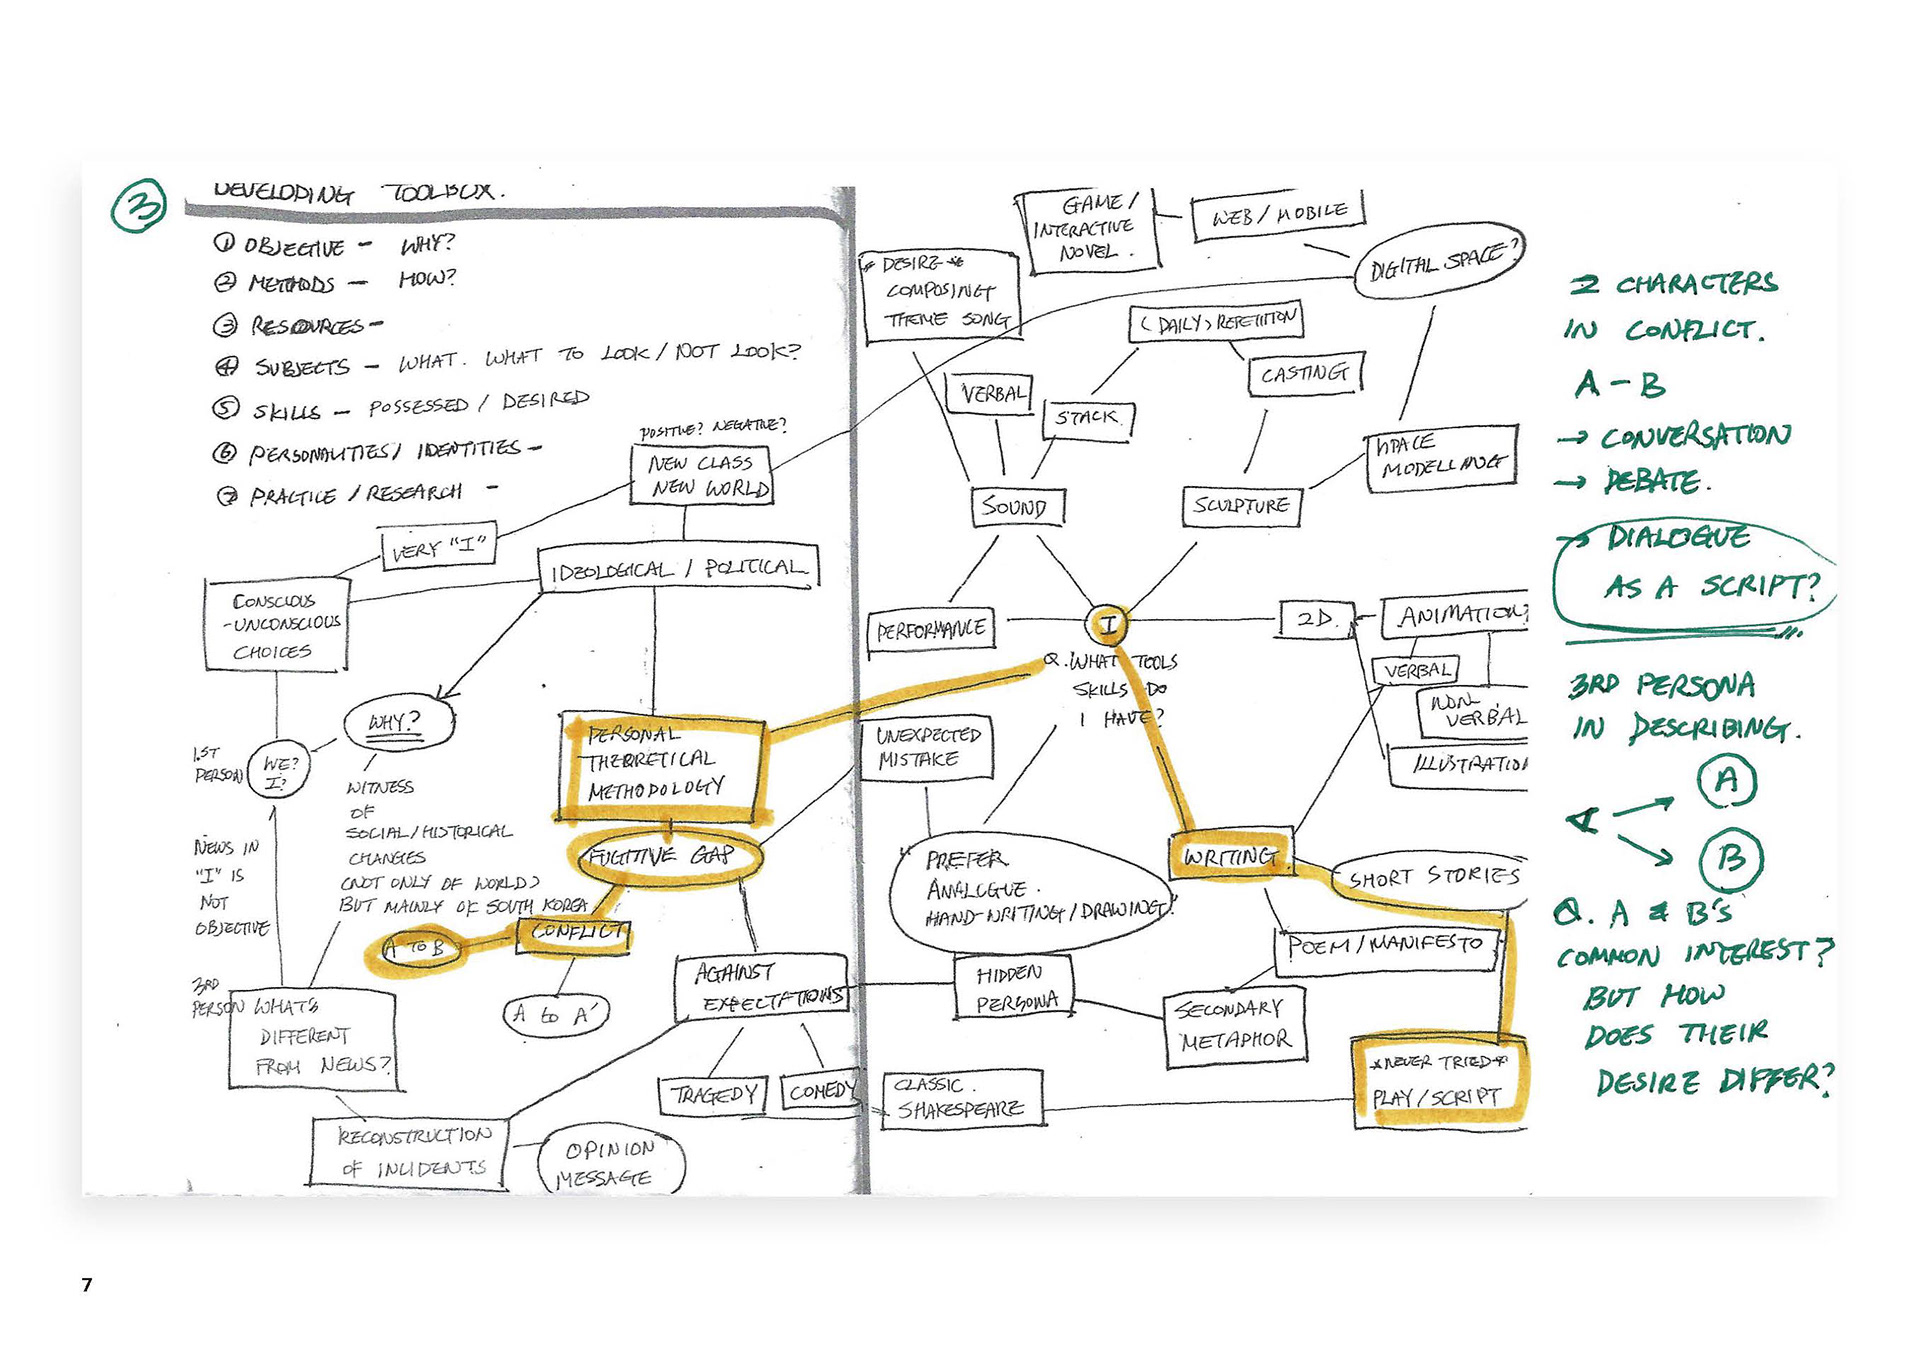 3
DEVELOPING TOOLBOX.
① OBJECTIVE — WHY?
② METHODS — HOW?
③ RESOURCES—
④ SUBJECTS — WHAT. WHAT TO LOOK / NOT LOOK?
⑤ SKILLS — POSSESSED / DESIRED
⑥ PERSONALITIES / IDENTITIES —
⑦ PRACTICE / RESEARCH —
POSITIVE? NEGATIVE?
NEW CLASS
NEW WORLD
VERY "I"
IDEOLOGICAL / POLITICAL
CONSCIOUS
-UNCONSCIOUS
CHOICES
WHY?
1ST
PERSON
WE?
I?
WITNESS
OF
SOCIAL/HISTORICAL
CHANGES
(NOT ONLY OF WORLD)
BUT MAINLY OF SOUTH KOREA
NEWS IN
"I" IS
NOT
OBJECTIVE
PERSONAL
THEORETICAL
METHODOLOGY
FUGITIVE GAP
CONFLICT
A TO B
A to A'
3RD
PERSON
WHAT'S
DIFFERENT
FROM NEWS?
AGAINST
EXPECTATIONS
TRAGEDY
COMEDY
RECONSTRUCTION
OF INCIDENTS
OPINION
MESSAGE
GAME /
INTERACTIVE
NOVEL.
WEB / MOBILE
DIGITAL SPACE?
* DESIRE *
COMPOSING
THEME SONG
(DAILY) REPETITION
CASTING
VERBAL
STACK.
SPACE
MODELLING
SOUND
SCULPTURE
PERFORMANCE
I
2D.
ANIMATION?
VERBAL
NON
VERBAL
ILLUSTRATION
Q. WHAT TOOLS
SKILLS DO
I HAVE?
UNEXPECTED
MISTAKE
PREFER
ANALOGUE.
HAND-WRITING / DRAWING
WRITING
SHORT STORIES
POEM / MANIFESTO
HIDDEN
PERSONA
SECONDARY
METAPHOR
CLASSIC.
SHAKESPEARE
*NEVER TRIED*
PLAY / SCRIPT
2 CHARACTERS
IN CONFLICT.
A — B
→ CONVERSATION
→ DEBATE.
→ DIALOGUE
AS A SCRIPT?
3RD PERSONA
IN DESCRIBING.
A
B
Q. A & B'S
COMMON INTEREST?
BUT HOW
DOES THEIR
DESIRE DIFFER?
7